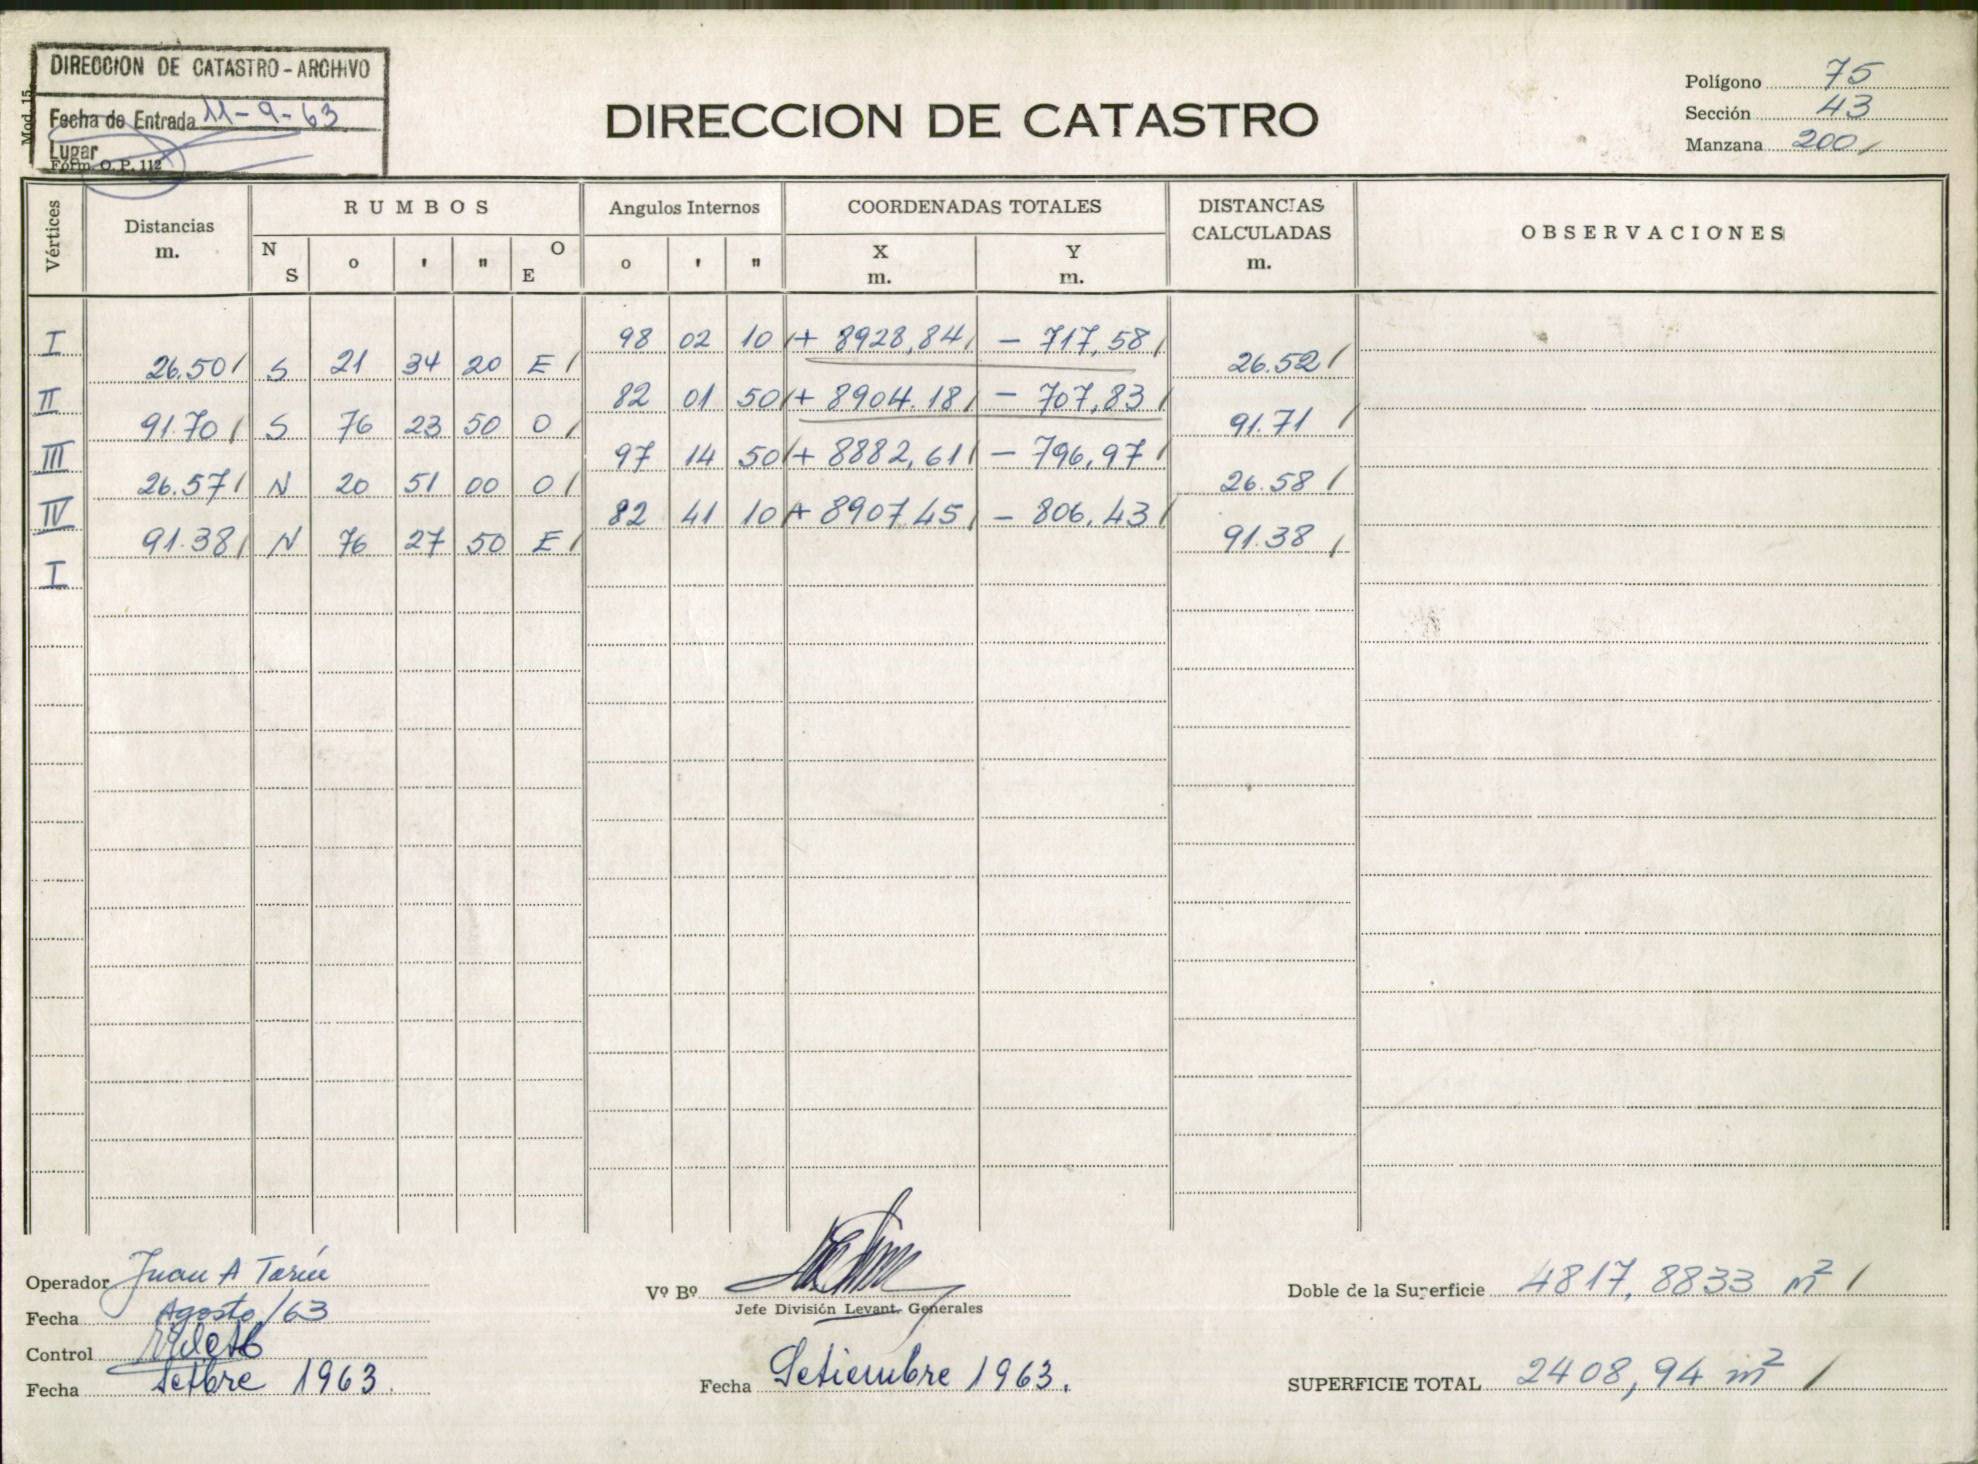 DIRECCION DE CATASTRO - ARCHIVO
Fecha de Entrada 11-9-63
Lugar
Form. O. P. 112
Mod. 15
DIRECCION DE CATASTRO
Polígono 75
Sección 43
Manzana 200
Vértices
Distancias
m.
RUMBOS
N
S
o ' "
O
E
Angulos Internos
o ' "
COORDENADAS TOTALES
X
m.
Y
m.
DISTANCIAS
CALCULADAS
m.
OBSERVACIONES
I 98 02 10 + 8928,84 - 717,58
26.50 S 21 34 20 E 26.52
II 82 01 50 + 8904.18 - 707,83
91.70 S 76 23 50 O 91.71
III 97 14 50 + 8882,61 - 796,97
26.57 N 20 51 00 O 26.58
IV 82 41 10 + 8907.45 - 806.43
91.38 N 76 27 50 E 91.38
I
Operador Juan A
Fecha Agosto/63
Control
Fecha Setbre 1963.
Vº Bº
Jefe División Levant. Generales
Fecha Setiembre 1963.
Doble de la Superficie 4817,8833 m²
SUPERFICIE TOTAL 2408,94 m²